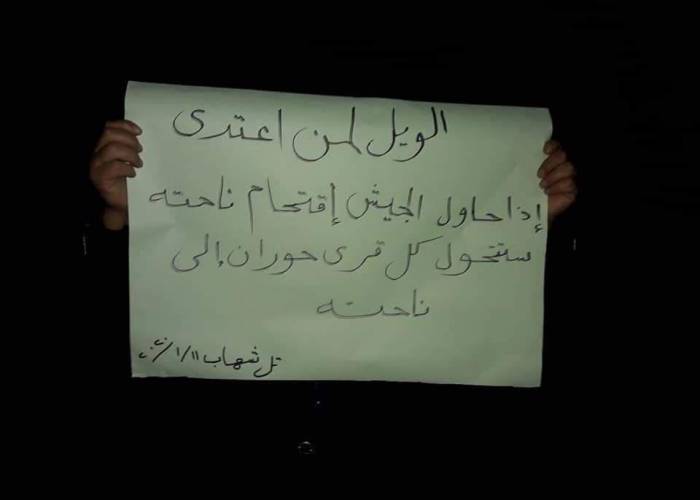 الويل لمن اعتدى
إذا حاول الجيش إقتحام ناحته
ستتحول كل قرى حوران إلى
ناحته
تل شهاب ١١/١/